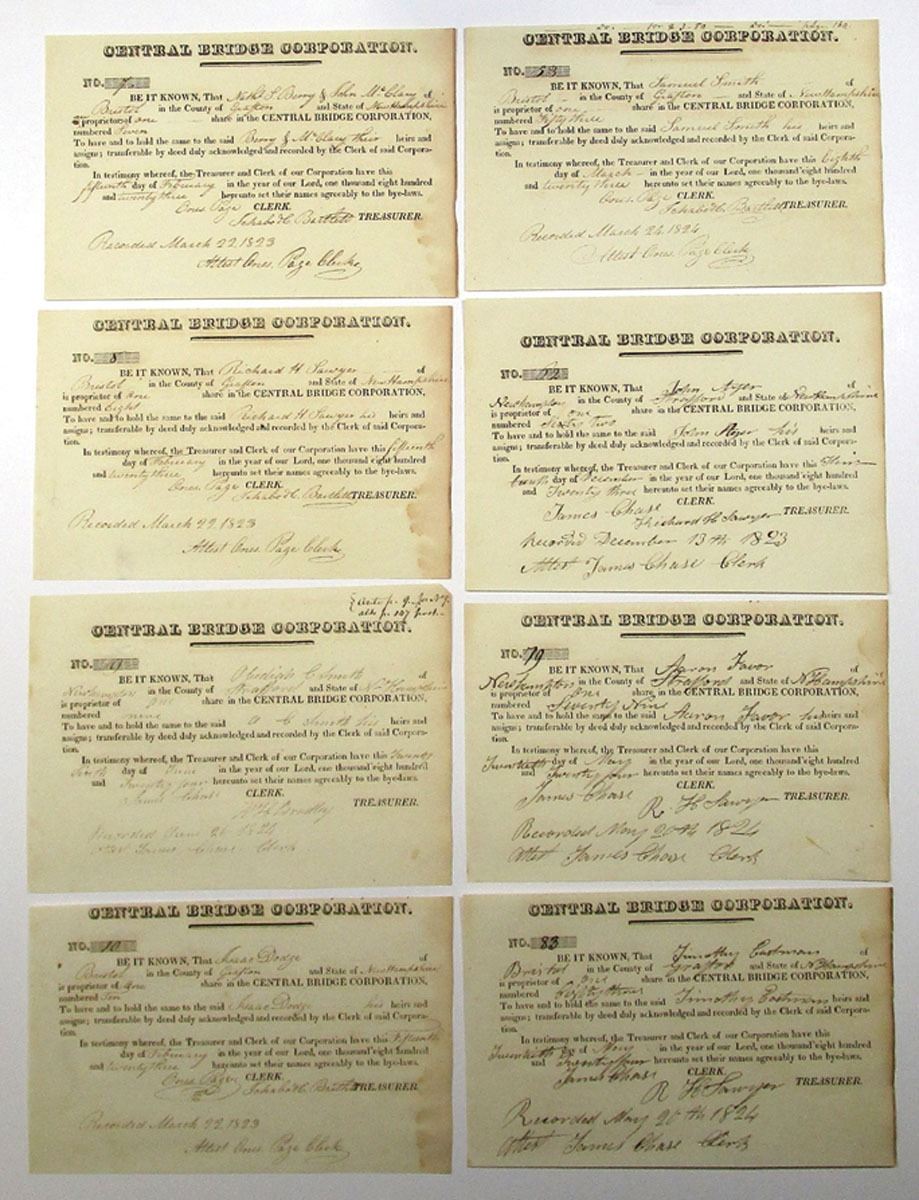 CENTRAL BRIDGE CORPORATION.
NO. 7
BE IT KNOWN, That Nathl S. Berry & John McClary of
Bristol in the County of Grafton and State of New Hampshire
proprietors of one share in the CENTRAL BRIDGE CORPORATION,
numbered Seven
To have and to hold the same to the said Berry & McClary their heirs and
assigns; transferable by deed duly acknowledged and recorded by the Clerk of said Corpora-
tion.
In testimony whereof, the Treasurer and Clerk of our Corporation have this
fifteenth day of February in the year of our Lord, one thousand eight hundred
and twenty three hereunto set their names agreeably to the bye-laws.
Ones. Page CLERK.
Ichabod C. Bartlett TREASURER.
Recorded March 22. 1823
Attest Ones. Page Clerk
CENTRAL BRIDGE CORPORATION.
NO. 53
BE IT KNOWN, That Samuel Smith of
Bristol in the County of Grafton and State of New Hampshire
is proprietor of one share in the CENTRAL BRIDGE CORPORATION,
numbered Fifty three
To have and to hold the same to the said Samuel Smith his heirs and
assigns; transferable by deed duly acknowledged and recorded by the Clerk of said Corpora-
tion.
In testimony whereof, the Treasurer and Clerk of our Corporation have this Eighth
day of March in the year of our Lord, one thousand eight hundred
and twenty three hereunto set their names agreeably to the bye-laws.
Ones. Page CLERK.
Ichabod C. Bartlett TREASURER.
Recorded March 24. 1824
Attest Ones. Page Clerk
CENTRAL BRIDGE CORPORATION.
NO. 8
BE IT KNOWN, That Richard H Sawyer of
Bristol in the County of Grafton and State of New Hampshire
is proprietor of One share in the CENTRAL BRIDGE CORPORATION,
numbered Eight
To have and to hold the same to the said Richard H Sawyer his heirs and
assigns; transferable by deed duly acknowledged and recorded by the Clerk of said Corpora-
tion.
In testimony whereof, the Treasurer and Clerk of our Corporation have this fifteenth
day of February in the year of our Lord, one thousand eight hundred
and twenty three hereunto set their names agreeably to the bye-laws.
Ones Page CLERK.
Ichabod C. Bartlett TREASURER.
Recorded March 22. 1823
Attest Ones. Page Clerk
CENTRAL BRIDGE CORPORATION.
NO.
BE IT KNOWN, That John Ayer of
Newhampton in the County of Strafford and State of Newhampshire
is proprietor of one share in the CENTRAL BRIDGE CORPORATION,
numbered Two
To have and to hold the same to the said John Ayer his heirs and
assigns; transferable by deed duly acknowledged and recorded by the Clerk of said Corpora-
tion.
In testimony whereof, the Treasurer and Clerk of our Corporation have this Thir-
teenth day of December in the year of our Lord, one thousand eight hundred
and Twenty three hereunto set their names agreeably to the bye-laws.
CLERK.
James Chase
Richard H Sawyer TREASURER.
Recorded December 13th 1823
Attest James Chase Clerk
CENTRAL BRIDGE CORPORATION.
NO.
BE IT KNOWN, That Obadiah C Smith of
Newhampton in the County of Strafford and State of N Hampshire
is proprietor of one share in the CENTRAL BRIDGE CORPORATION,
numbered nine
To have and to hold the same to the said O C Smith his heirs and
assigns; transferable by deed duly acknowledged and recorded by the Clerk of said Corpora-
tion.
In testimony whereof, the Treasurer and Clerk of our Corporation have this Twenty
Sixth day of June in the year of our Lord, one thousand eight hundred
and Twenty four hereunto set their names agreeably to the bye-laws.
James Chase CLERK.
TREASURER.
Recorded June 26 1824
Attest James Chase Clerk
CENTRAL BRIDGE CORPORATION.
NO. 79
BE IT KNOWN, That Aaron Favor of
Newhampton in the County of Strafford and State of N Hampshire
is proprietor of One share in the CENTRAL BRIDGE CORPORATION,
numbered Seventy Nine
To have and to hold the same to the said Aaron Favor his heirs and
assigns; transferable by deed duly acknowledged and recorded by the Clerk of said Corpora-
tion.
In testimony whereof, the Treasurer and Clerk of our Corporation have this
Twentieth day of May in the year of our Lord, one thousand eight hundred
and Twenty four hereunto set their names agreeably to the bye-laws.
CLERK.
James Chase
R H Sawyer TREASURER.
Recorded May 20th 1824
Attest James Chase Clerk
CENTRAL BRIDGE CORPORATION.
NO. 10
BE IT KNOWN, That Isaac Dodge of
Bristol in the County of Grafton and State of New Hampshire
is proprietor of One share in the CENTRAL BRIDGE CORPORATION,
numbered Ten
To have and to hold the same to the said Isaac Dodge his heirs and
assigns; transferable by deed duly acknowledged and recorded by the Clerk of said Corpora-
tion.
In testimony whereof, the Treasurer and Clerk of our Corporation have this Fifteenth
day of February in the year of our Lord, one thousand eight hundred
and twenty three hereunto set their names agreeably to the bye-laws.
Ones Page CLERK.
Ichabod C. Bartlett TREASURER.
Recorded March 22. 1823
Attest Ones. Page Clerk
CENTRAL BRIDGE CORPORATION.
NO. 83
BE IT KNOWN, That Timothy Eastman of
Bristol in the County of Grafton and State of N Hampshire
is proprietor of One share in the CENTRAL BRIDGE CORPORATION,
numbered three
To have and to hold the same to the said Timothy Eastman heirs and
assigns; transferable by deed duly acknowledged and recorded by the Clerk of said Corpora-
tion.
In testimony whereof, the Treasurer and Clerk of our Corporation have this
Twentieth day of May in the year of our Lord, one thousand eight hundred
and Twenty four hereunto set their names agreeably to the bye-laws.
James Chase CLERK.
R H Sawyer TREASURER.
Recorded May 20th 1824
Attest James Chase Clerk